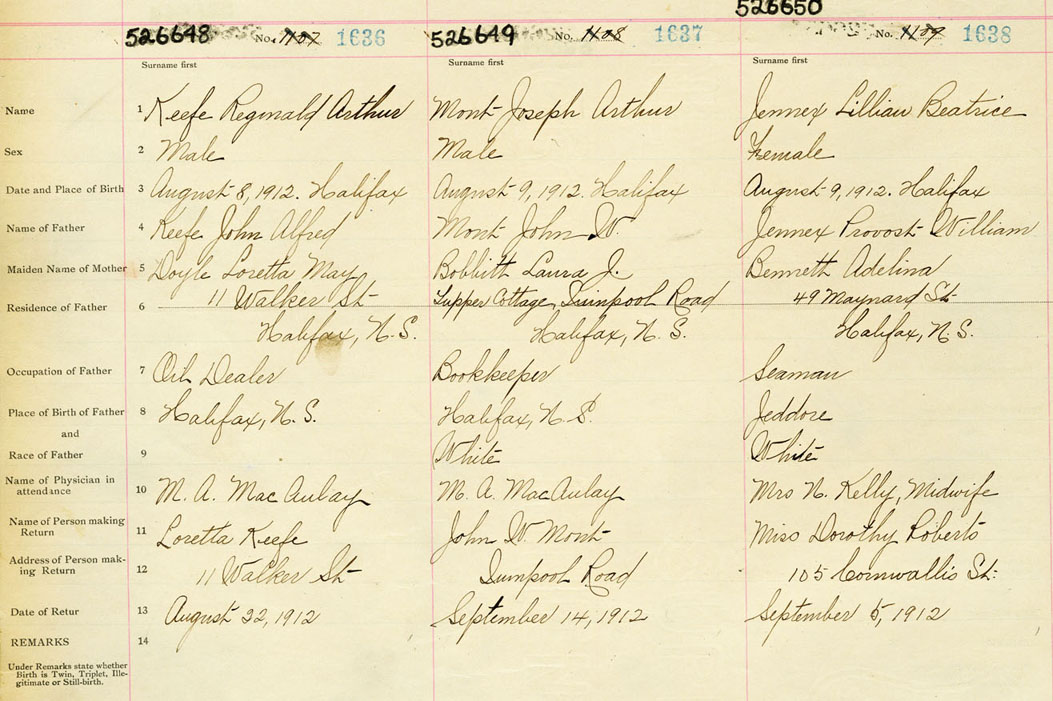 526650
526648 No. 1107 1636 526649 No. 1108 1637 No. 1109 1638
Surname first Surname first Surname first
Name 1 Keefe Reginald Arthur Mont Joseph Arthur Jennex Lillian Beatrice
Sex 2 Male Male Female
Date and Place of Birth 3 August 8, 1912. Halifax August 9, 1912. Halifax August 9, 1912. Halifax
Name of Father 4 Keefe John Alfred Mont John W. Jennex Provost William
Maiden Name of Mother 5 Doyle Loretta May Bobbitt Laura J. Bennett Adelina
Residence of Father 6 11 Walker St Tupper Cottage, Road 49 Maynard St
Halifax, N.S. Halifax, N.S. Halifax, N.S.
Occupation of Father 7 Oil Dealer Bookkeeper Seaman
Place of Birth of Father 8 Halifax, N.S. Halifax, N.S. Jeddore
and
Race of Father 9 White White
Name of Physician in
attendance 10 M. A. MacAulay M. A. MacAulay Mrs N. Kelly, Midwife
Name of Person making
Return 11 Loretta Keefe John W. Mont Miss Dorothy Roberts
Address of Person mak-
ing Return 12 11 Walker St Road 105 Cornwallis St.
Date of Retur 13 August 22, 1912 September 14, 1912 September 5, 1912
REMARKS 14
Under Remarks state whether
Birth is Twin, Triplet, Ille-
gitimate or Still-birth.